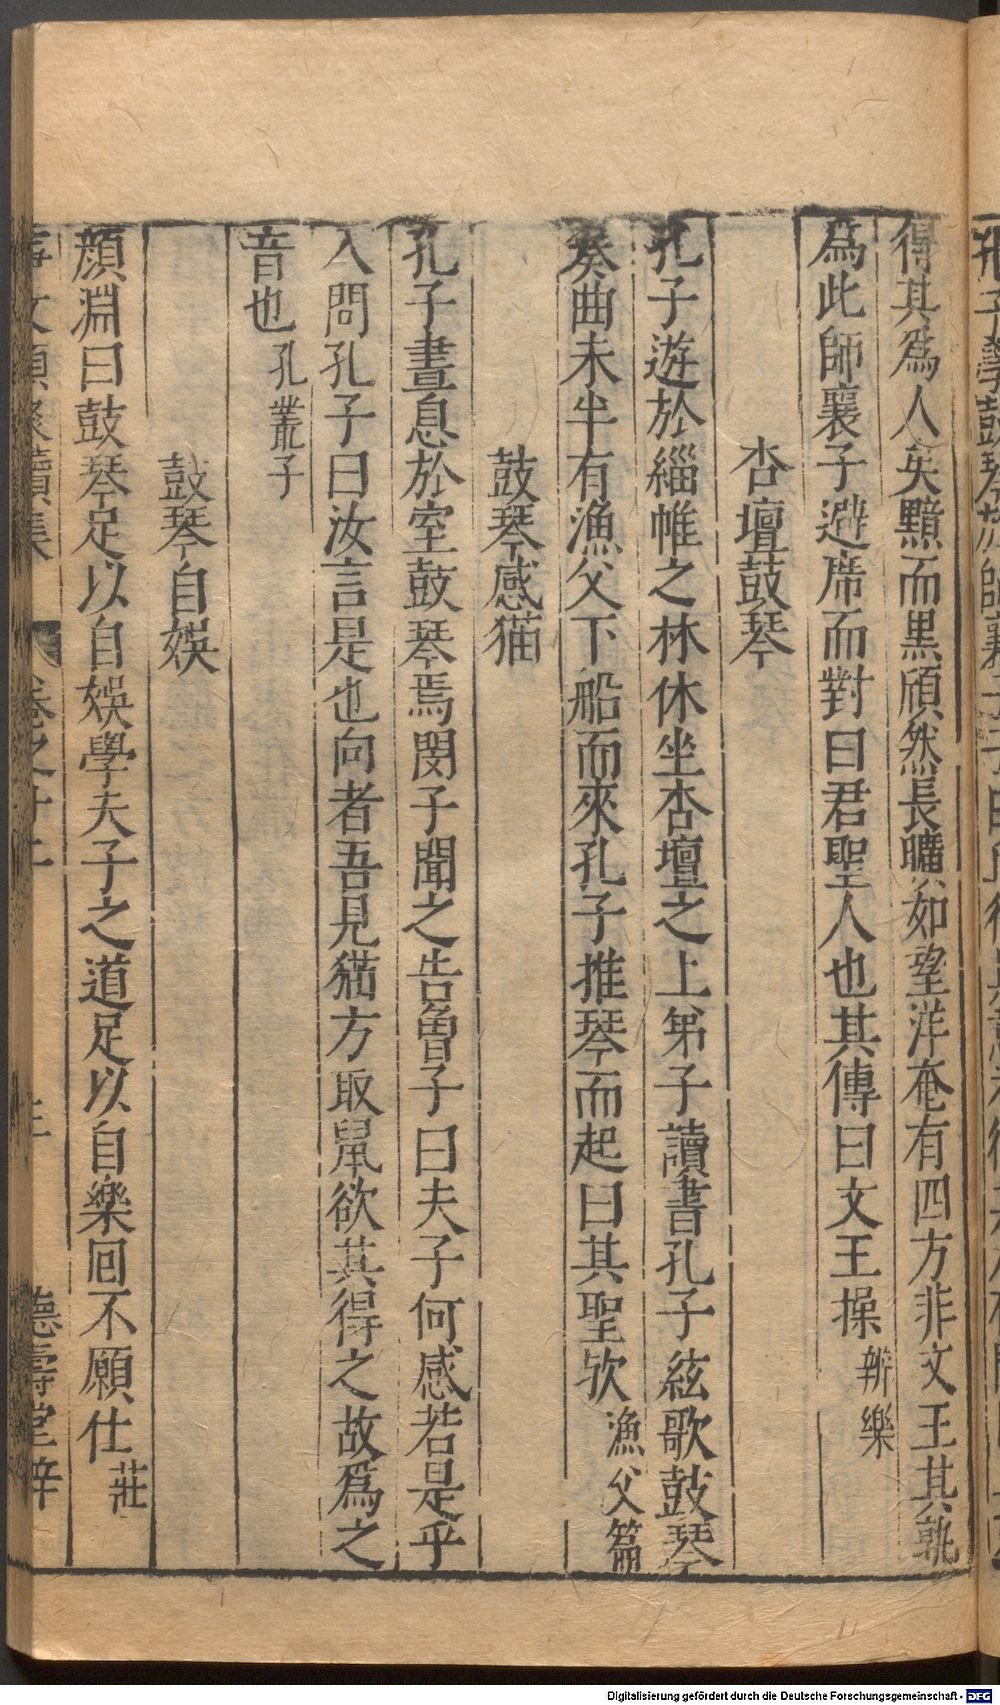 得其爲人矣黮而黒頎然長曠如望洋奄有四方非文王其孰
爲此師襄子避席而對曰君聖人也其傳曰文王操辨樂
杏壇鼓琴
孔子遊於緇帷之林休坐杏壇之上弟子讀書孔子絃歌鼓琴
奏曲未半有漁父下船而來孔子推琴而起曰其聖歟漁父篇
鼓琴感猫
孔子晝息於室鼓琴焉閔子聞之告魯子曰夫子何感若是乎
入問孔子曰汝言是也向者吾見猫方取鼠欲其得之故爲之
音也孔叢子
鼓琴自娛
顔淵曰鼓琴足以自娛學夫子之道足以自樂回不願仕莊
事文類聚續集 卷之廿二 德壽堂梓
Digitalisierung gefördert durch die Deutsche Forschungsgemeinschaft - DFG